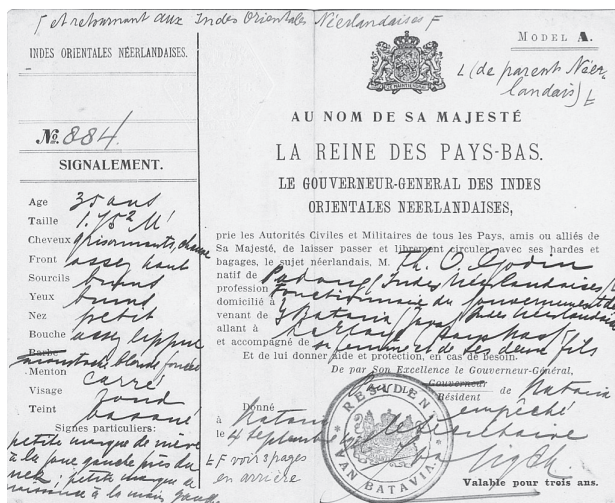 Γ et retournant aux Indes Orientales Néerlandaises F
INDES ORIENTALES NÉERLANDAISES.
No. 884
SIGNALEMENT.
Age 35 ans
Taille 1.752 M
Cheveux grisonnants,
Front assez haut
Sourcils bruns
Yeux bruns
Nez petit
Bouche assez lippue
Barbe moustache blonde foncée
Menton carré
Visage rond
Teint basané
Signes particuliers:
petite marque de
à la joue gauche près du
nez; petite marque de
à la main
MODEL A.
L (de parent Néer-
landais) t
JE MAINTIENDRAI
AU NOM DE SA MAJESTÉ
LA REINE DES PAYS-BAS.
LE GOUVERNEUR-GENERAL DES INDES
ORIENTALES NEERLANDAISES,
prie les Autorités Civiles et Militaires de tous les Pays, amis ou alliés de
Sa Majesté, de laisser passer et librement circuler, avec ses hardes et
bagages, le sujet néerlandais, M. Th. O. Godin
natif de Padang, Indes Néerlandaises
profession Fonctionnaire du Gouvernement
domicilié à
venant de Batavia Java Indes Néerlandaises
allant à
et accompagné de sa femme et de ses deux fils
Et de lui donner aide et protection, en cas de besoin.
De par Son Excellence le Gouverneur-Général,
Gouverneur
Résident de Batavia
empêché
Donné
à Batavia
le 4 Septembre le Secrétaire
RESIDENT VAN BATAVIA.
t F voir 3 pages
en arrière
Valable pour trois ans.